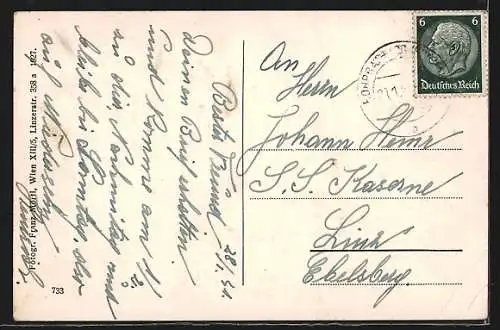 Bester Freund!
28./1. 41.
Deinen Brief erhalten
und komme am 1/2.
zu dir, Nachmittag und
bleibe bis Sonntag, also
auf Wiedersehen
Fotogr. Franz Mörtl, Wien XIII/5, Linzerstr. 358 a 1927.
733
An
Herrn
Johann Heinz
S. S. Kaserne
Linz
Ebelsberg.
6 6
Deutsches Reich